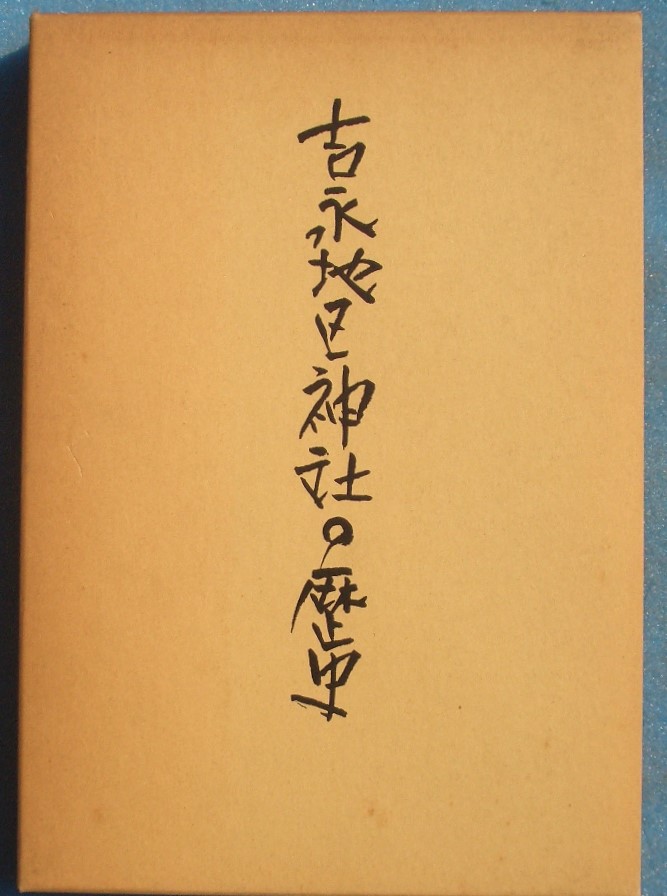 吉永地区神社の歴史